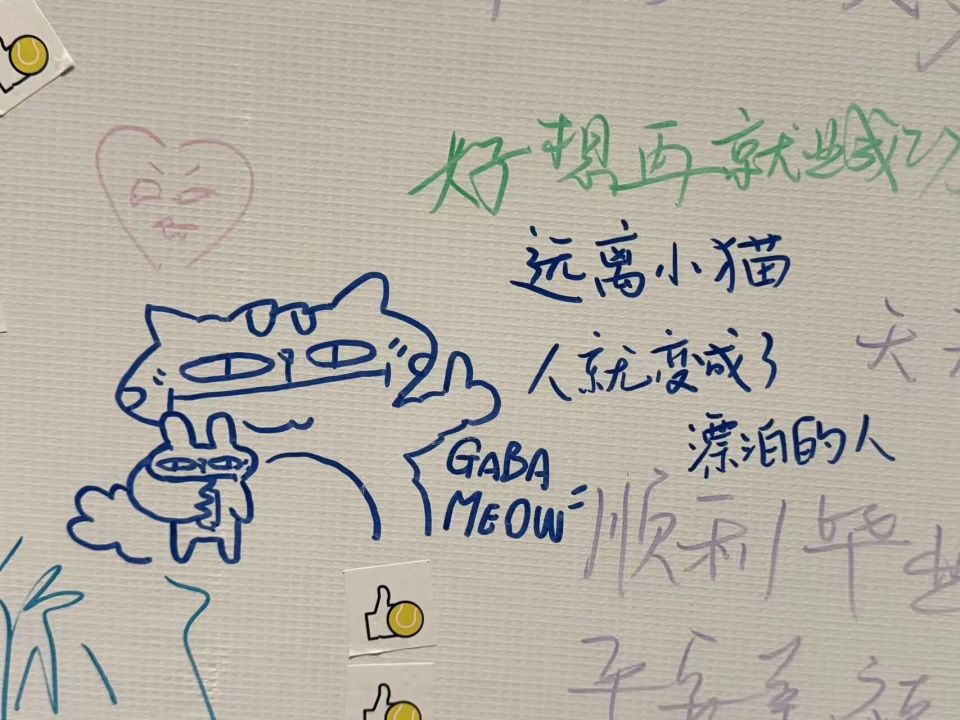 好想再就业成功
远离小猫
人就变成了
漂泊的人
GABA
MEOW
顺利毕业
你